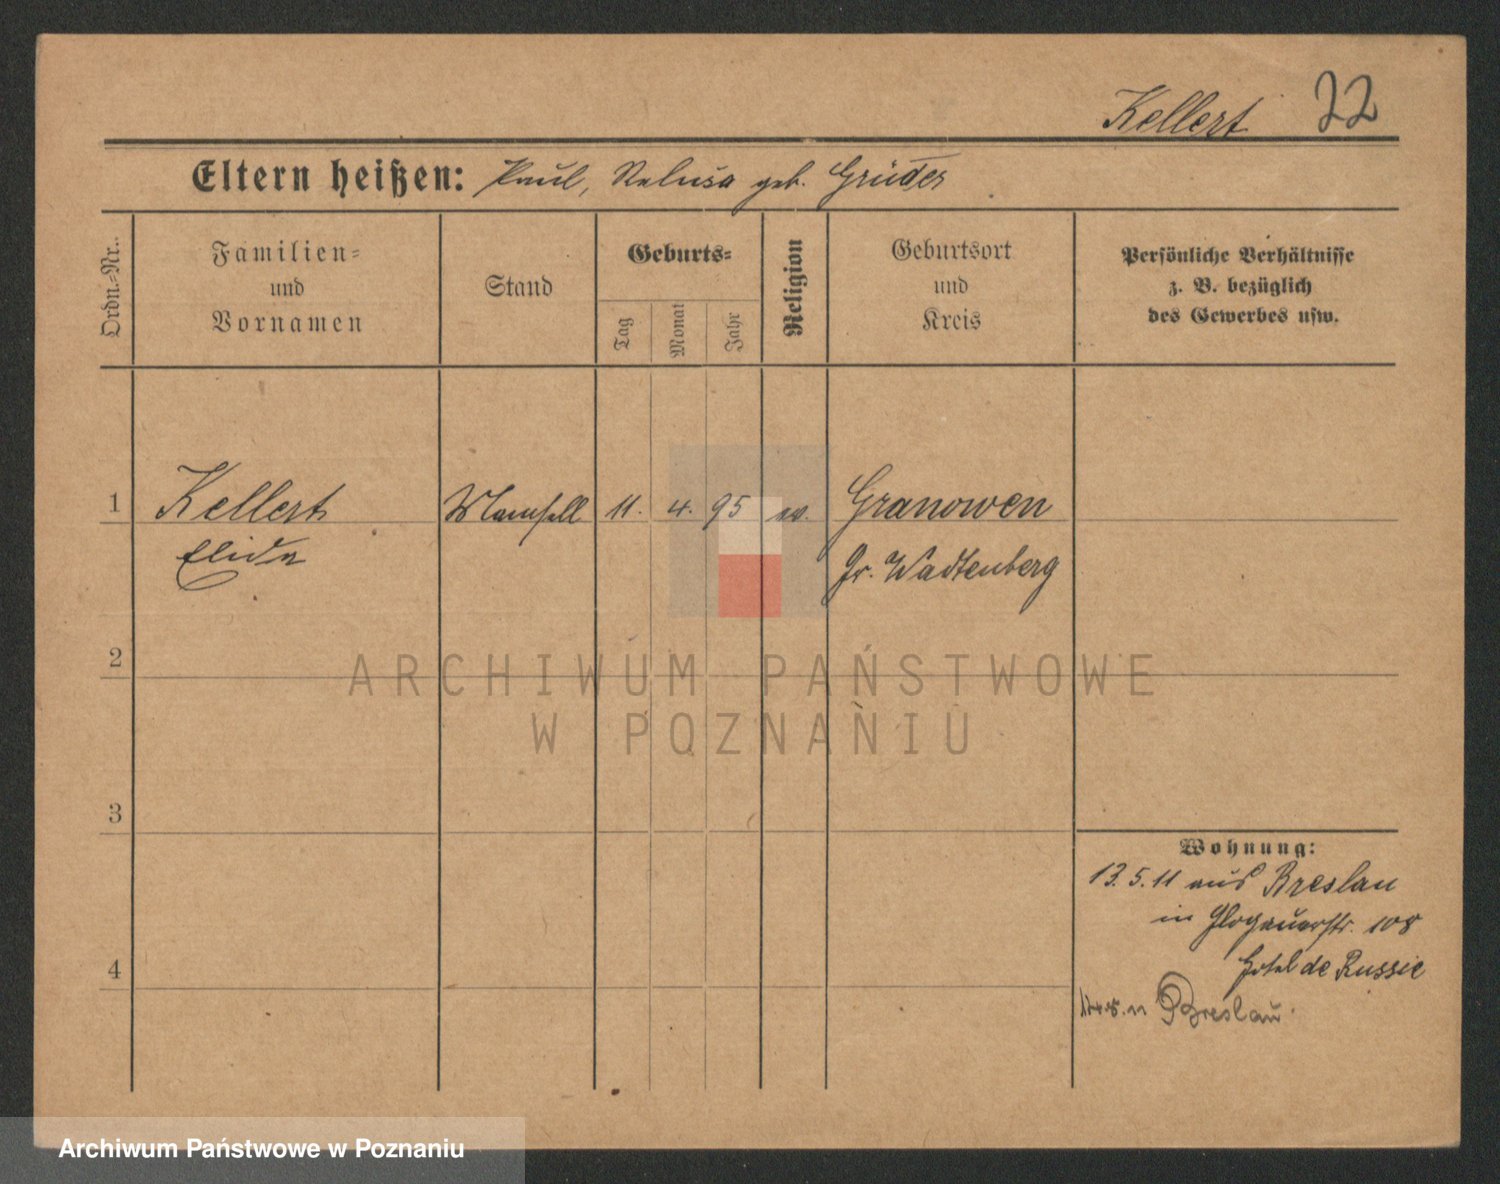 Kellert 22
Eltern heißen: Paul, geb. Grüder
Ordn.-Nr.
Familien-
und
Vornamen
Stand
Geburts-
Tag
Monat
Jahr
Religion
Geburtsort
und
Kreis
Persönliche Verhältnisse
z. B. bezüglich
des Gewerbes usw.
1 Kellert Mamsell 11. 4. 95 ev. Granowen
Elida Gr. Wartenberg
2
3
4
Wohnung:
13.5.11 aus Breslau
in Glogauerstr. 108
Hotel de Russie
n Breslau.
ARCHIWUM PAŃSTWOWE
W POZNANIU
Archiwum Państwowe w Poznaniu